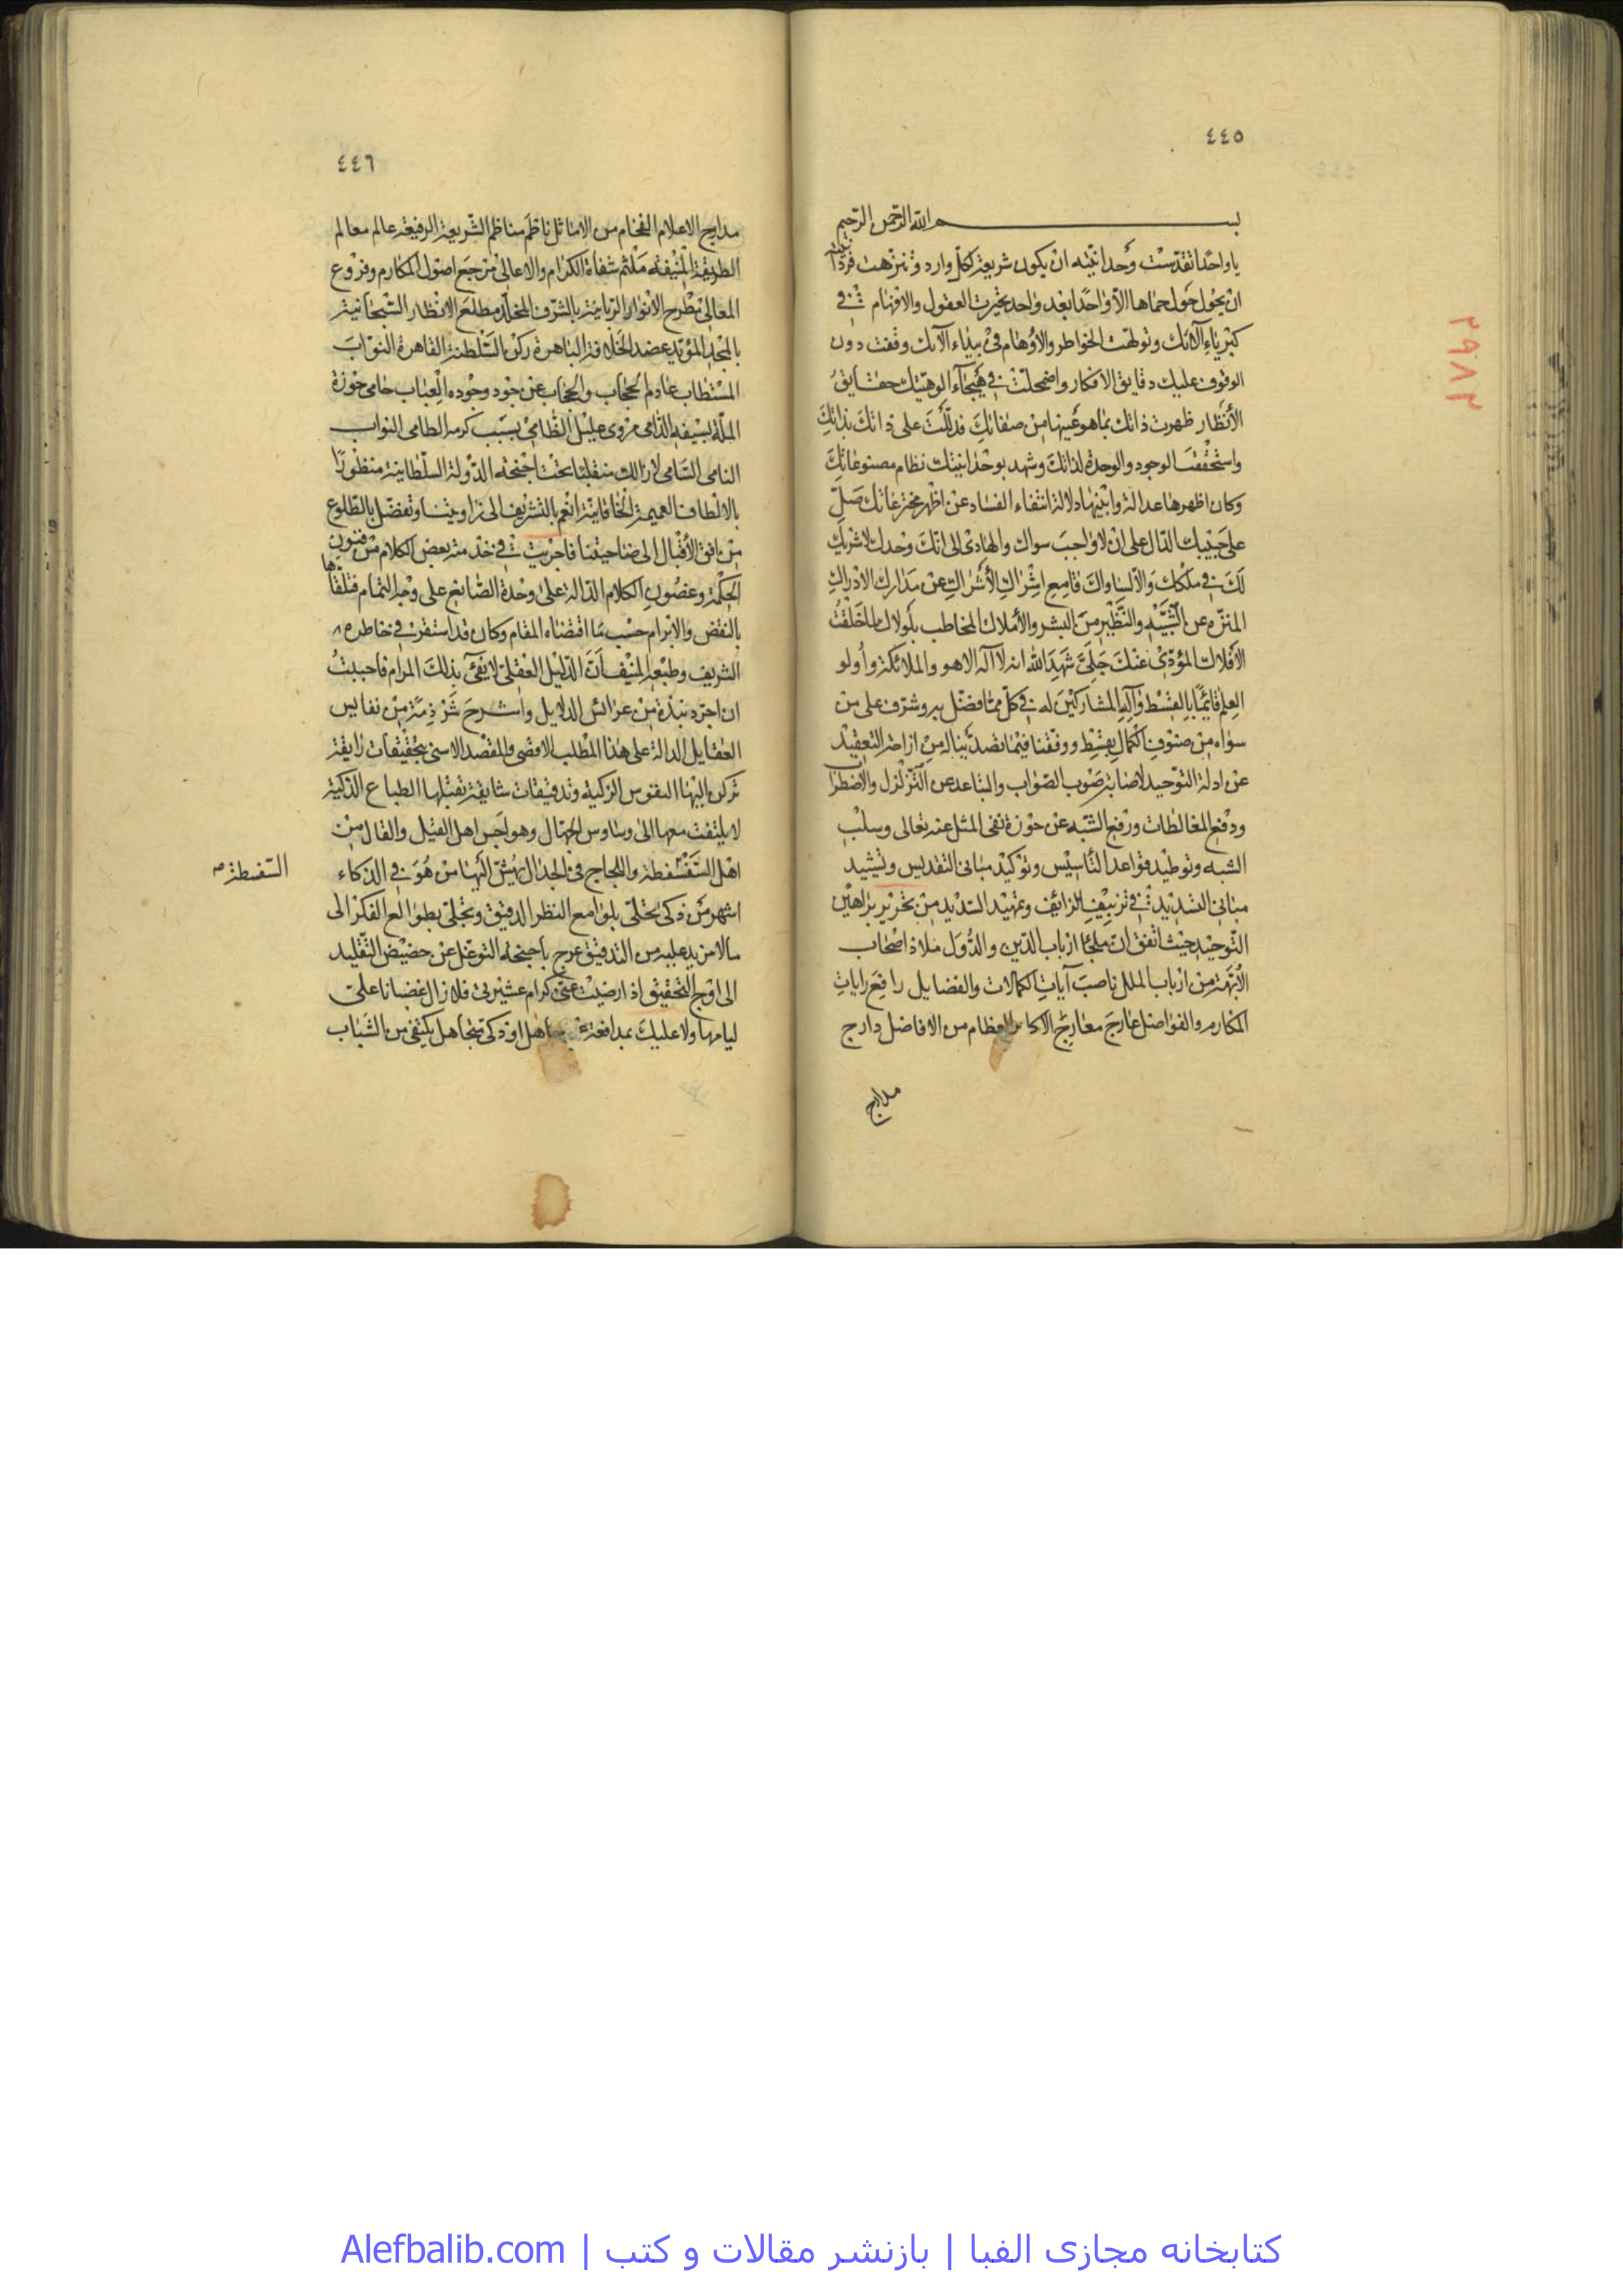 ٤٤٥
بسم الله الرحمن الرحيم
يا واحدًا تقدست وحدانيته ان يكون شريعة لكل وارد و تنزهت فردانيته
ان يحول حول حماها الآواحدًا بعد واحد تحيرت العقول والافهام في
كبرياء آلائك وتولهت الخواطر والاوهام في بيداء آلائك وقفت دون
الوقوف عليك دقايق الافكار واضمحلت في هيجاء الوهيتك حقايق
الأنظار ظهرت ذاتك بما هو عينها من صفاتك فدللت على ذاتك بذاتك
واستحققت الوجود والوحدة لذاتك وشهد بوحدانيتك نظام مصنوعاتك
وكان اظهرها عدالة وابينها دلالة انتفاء الفساد عن اظهر مخترعاتك صل
على حبيبك الدال على ان لا واجب سواك والهادي الى انك وحدك لا شريك
لك في ملكك قامع اشراك الأشراك عن مدارك الادراك
المنزه عن الشبيه والنظير من البشر والأملاك المخاطب بلولاك لما خلقت
الافلاك المؤدي عنك جلي شهد الله انه لا اله الا هو والملائكة وأولو
العلم قائمًا بالقسط وآله المشاركين له في كل مما افضل به وشرف على من
سواه من صنوف الكمال بقسط ووفقنا فيما نضد بناله من ازاحة التعقيد
عن ادلة التوحيد لاصابة صوب الصواب والتباعد عن التزلزل والاضطراب
ودفع المغالطات ورفع الشبه عن حوزة نفى المثل عنه تعالى وسلب
الشبه وتوطيد قواعد التأسيس وتوكيد مبانى التقديس وتشييد
مبانى التسديد في تزييف الزائف وتمهيد السديد من تحرير براهين
التوحيد حيث اتفق ان ملجأ ارباب الدين والدول ملاذ اصحاب
الأبهة من ارباب الملل ناصب آيات الكمالات والفضايل رافع رايات
المكارم والفواضل عارج معارج الاكابر العظام من الافاضل دارج
مدارج
٤٤٦
مدارج الاعلام الفخام من الاماثل ناظم مناظم الشريعة الرفيعة عالم معالم
الطريقة المنيفه ملثم شفاه الكرام والاعالى مرجع اصول المكارم وفروع
المعالى مطرح الانوار الربانية بالشرف المخلد مطلع الانظار السبحانية
بالمجد المؤيد عضد الخلافة الباهرة ركن السلطنة القاهرة النواب
المستطاب عادم الحجاب والحجاب عن جود وجوده العباب حامى حوزة
الملة بسيفه الدامى مروى غليل الظامى بسبب كرمه الطامى النواب
النامى السامى لازالت متقلبا تحت اجنحة الدولة السلطانية منظورًا
بالالطاف العميمة الخاقانية انعم بالتشريف الى زاويتنا وتفضل بالطلوع
من افق الاقبال الى ضاحيتنا فاجريت في خدمته بعض الكلام من فنون
الحكمة وغصون الكلام الدالة على وحدة الصانع على وجه التمام فتلقاها
بالنقض والابرام حسب ما اقتضاه المقام وكان قد استقر في خاطره
الشريف وطبعه المنيف ان الدليل العقلي لا يفى بذلك المرام فاحببت
ان اجرد نبذة من عرائس الدلايل واشرح شرذمة من نفايس
العقايل الدالة على هذا المطلب الاقصى والمقصد الاسنى بتحقيقات رايقة
تركن اليها النفوس الزكية وتدقيقات شايقة تقبلها الطباع الذكية
لا يلتفت معها الى وساوس الجهال وهواجس اهل القيل والقال من
اهل السفسطة واللجاج في الجدال يهش اليها من هو في الذكاء
السفسطة ص
اشهر من ذكى تحلى بلوامع النظر الدقيق وتجلى بطوالع الفكر الى
ما لا مزيد عليه من التدقيق عرج باجنحة التوغل عن حضيض التقليد
الى اوج التحقيق اذا رضيت عنى كرام عشيرتى فلا زال غضبانا على
ليامها ولا عليك بمدافعة جاهل او ذكى تجاهل يكتفى من الشباب
٢٩٨٢
كتابخانه مجازى الفبا | بازنشر مقالات و كتب | Alefbalib.com